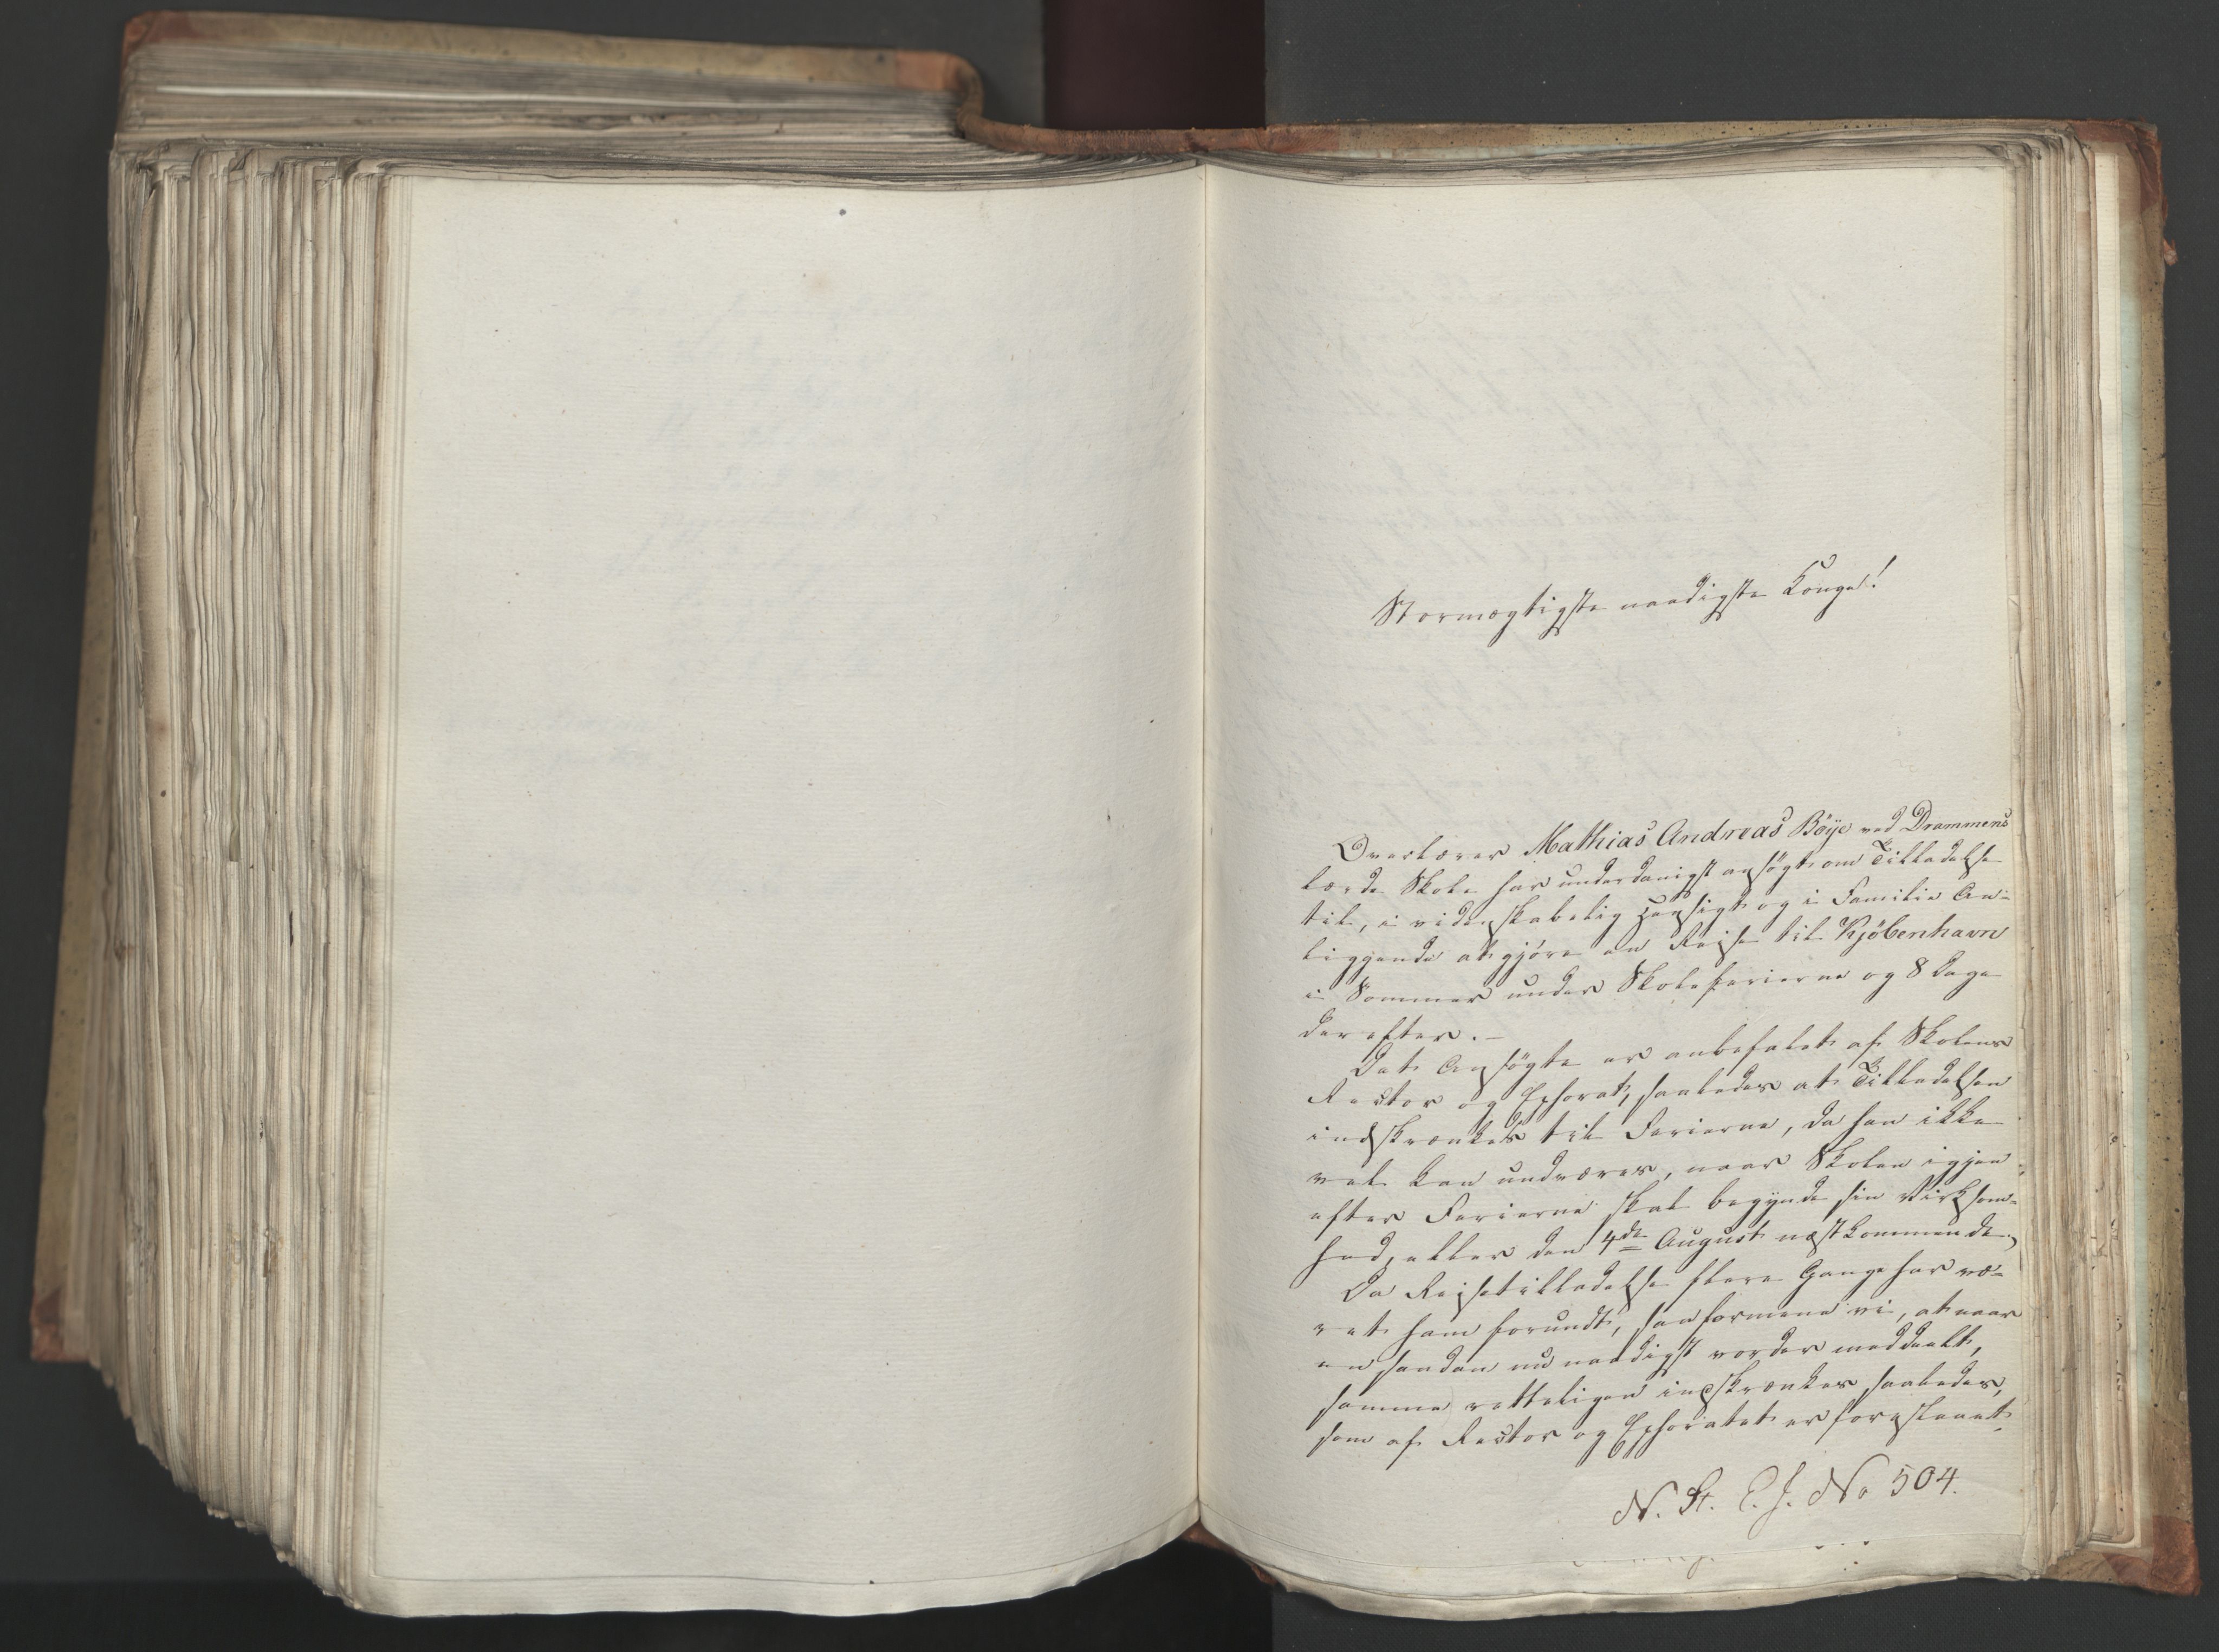 Stormægtigste naadigste Konge!
Overlærer Mathias Andreas Böye ved Drammens
lærde Skole har underdanigst ansögt om Tilladelse
til, i videnskabelig Hensigt og i Familie An-
liggende at gjöre en Reise til Kjöbenhavn
i Sommer under Skoleferierne og 8 Dage
derefter. -
Det Ansögte er anbefalet af Skolens
Rector og Ephorat, saaledes at Tilladelsen
indskrænkes til Ferierne, da han ikke
vel kan undværes, naar Skolen igjen
efter Ferierne skal begynde sin Virksom-
hed, eller den 4de August næstkommende.
Da Reisetilladelse flere Gange har væ-
ret ham forundt, saa formene vi, at naar
en saadan nu naadigst vorder meddeelt,
samme retteligen indskrænkes saaledes,
som af Rector og Ephoratet er foreslaaet.
N. St. E. J. No 504.